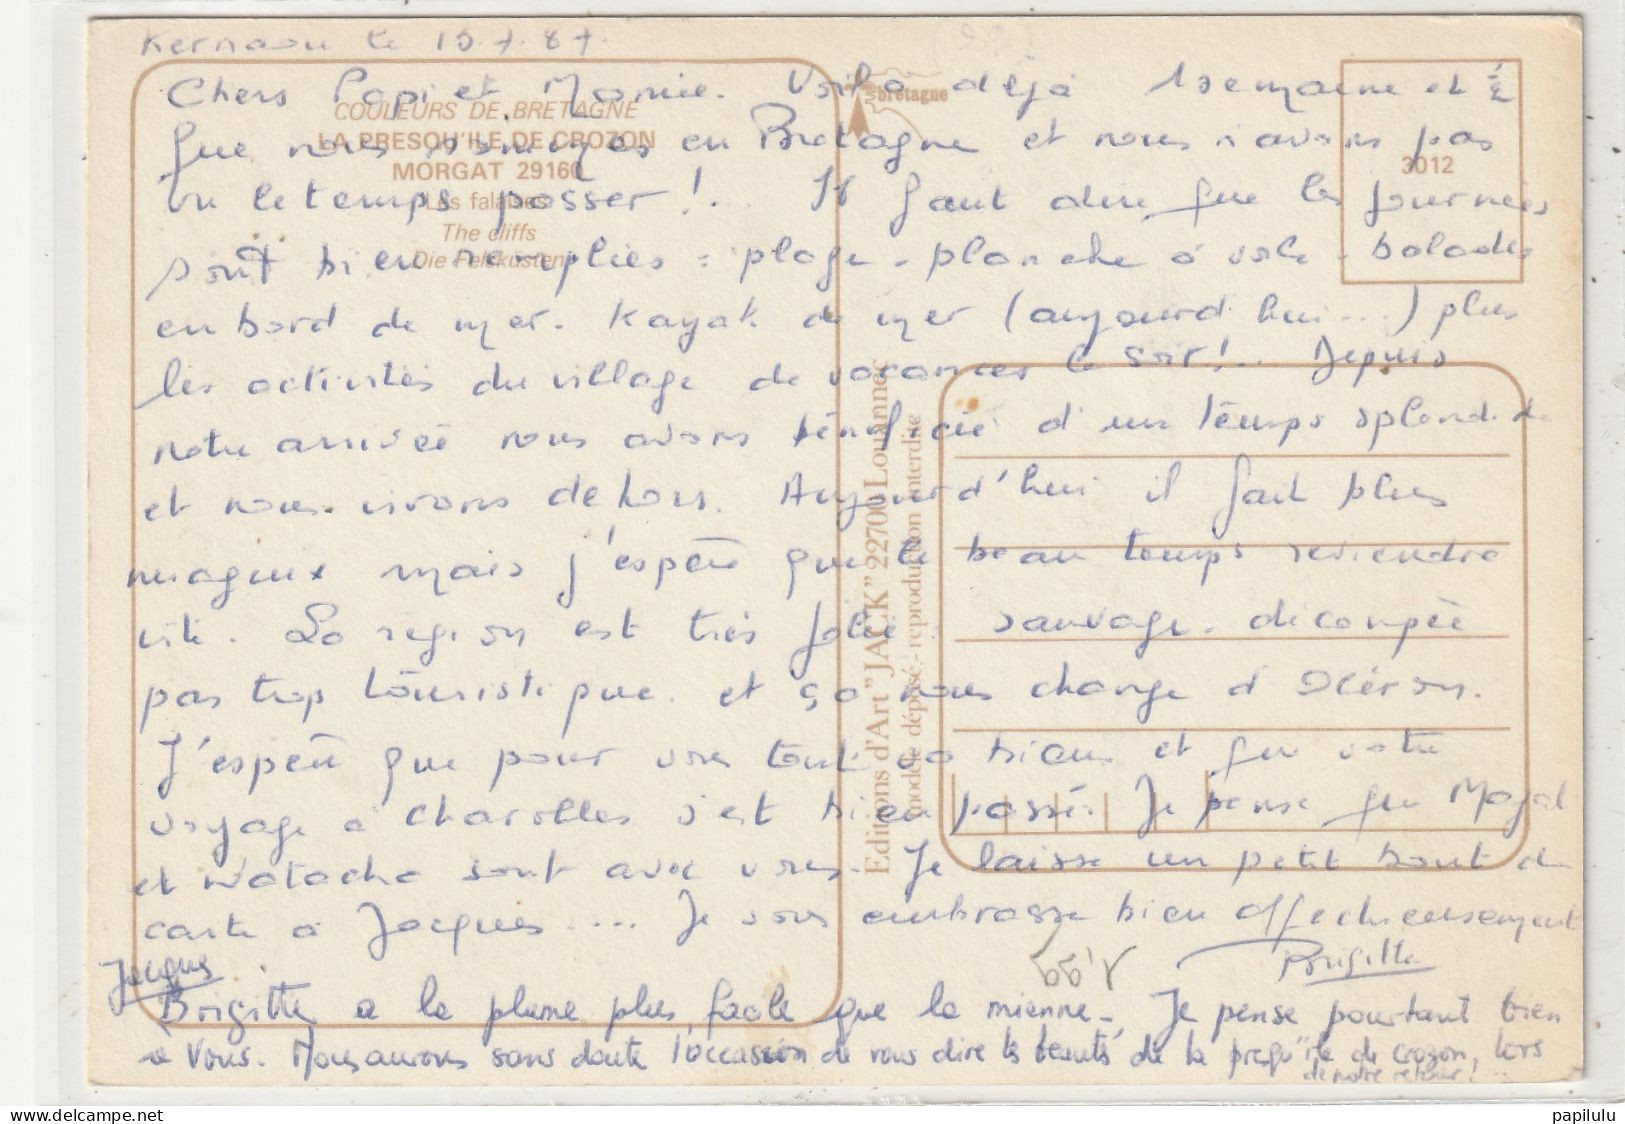 le 15.7.87.
Chers Papi et Mamie. Voilà déjà 1 semaine et ½
que nous sommes en Bretagne et nous n'avons pas
vu le temps passer !... Il faut dire que les journées
sont bien remplies : plage - planche à voile - balades
en bord de mer. Kayak de mer (aujourd'hui...) plus
les activités du village de vacances le soir !.. Depuis
notre arrivée nous avons bénéficié d'un temps splendide
et nous vivons dehors. Aujourd'hui il fait plus
nuageux mais j'espère que le beau temps reviendra
vite. La région est très jolie : sauvage. découpée
pas trop touristique. et ça nous change d'Oléron.
J'espère que pour vous tout va bien et que votre
voyage à Charolles s'est bien passé. Je pense que Magal
et Natacha sont avec vous. Je laisse un petit bout de
carte à Jacques.... Je vous embrasse bien affectueusement
Brigitte
Jacques
Brigitte a la plume plus facile que la mienne. Je pense pourtant bien
à vous. Nous aurons sans doute l'occasion de vous dire les beautés de la presqu'île de Crozon, lors
de notre retour !...
COULEURS DE BRETAGNE
LA PRESQU'ILE DE CROZON
MORGAT 29160
Les falaises
The cliffs
Die Felsküsten
bretagne
3012
Editions d'Art "JACK" 22700 Louannec
modèle déposé - reproduction interdite
papilulu